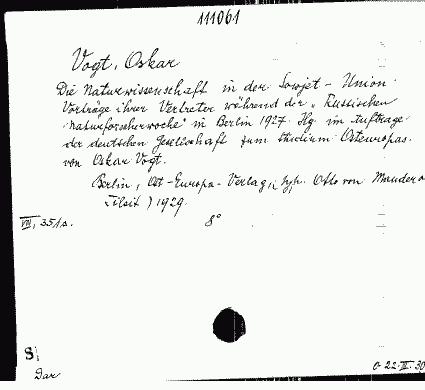 111061
Vogt, Oskar
Die Naturwissenschaft in der Sowjet-Union.
Vorträge ihrer Vertreter während der "Russischen
Naturforscherwoche" in Berlin 1927. Hg. im Auftrage
der deutschen Gesellschaft zum Studium Osteuropas.
von Oskar Vogt.
Berlin, Ost-Europa-Verlag, (Typ. Otto von Mauderode
Tilsit) 1929.
VIII, 351 s. 8°
S
Dar
22. 30